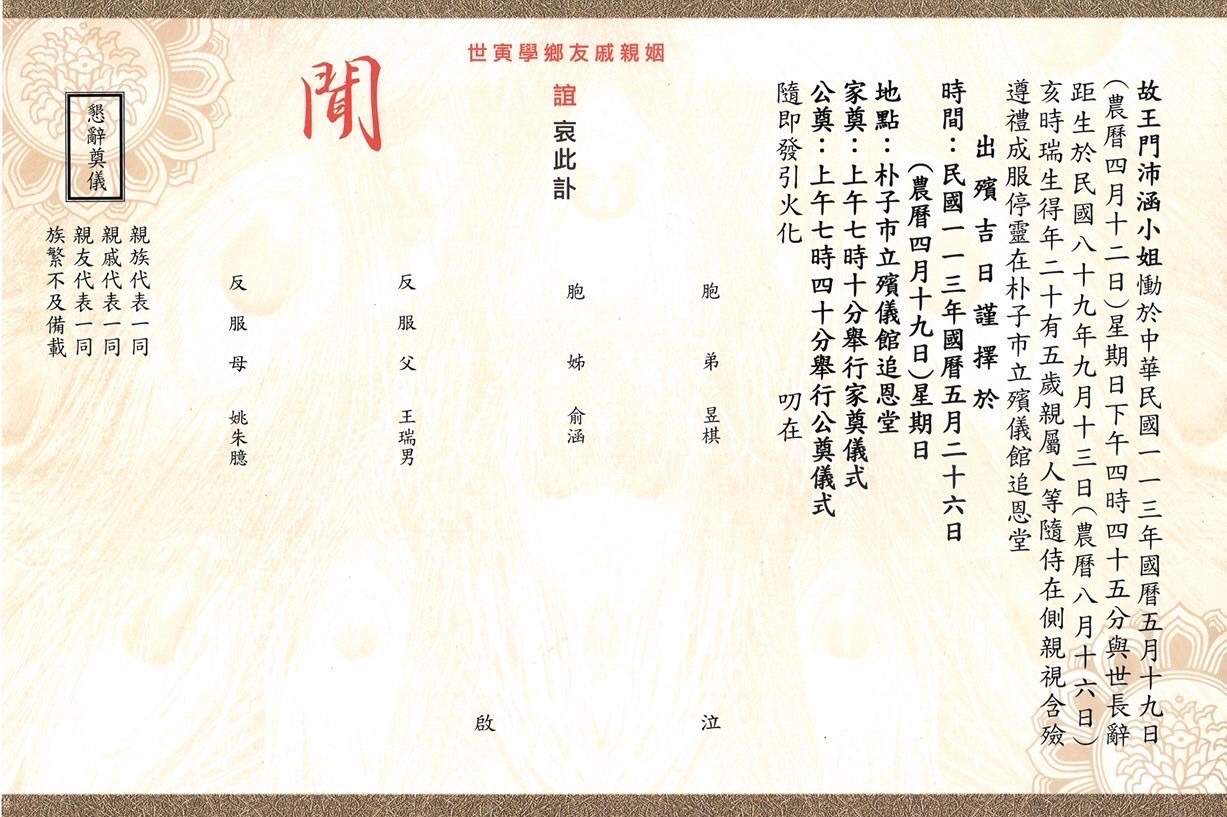 故王門沛涵小姐慟於中華民國一一三年國曆五月十九日
（農曆四月十二日）星期日下午四時四十五分與世長辭
距生於民國八十九年九月十三日（農曆八月十六日）
亥時瑞生得年二十有五歲親屬人等隨侍在側親視含殮
遵禮成服停靈在朴子市立殯儀館追恩堂
出殯吉日謹擇於
時間：民國一一三年國曆五月二十六日
（農曆四月十九日）星期日
地點：朴子市立殯儀館追恩堂
家奠：上午七時十分舉行家奠儀式
公奠：上午七時四十分舉行公奠儀式
隨即發引火化 叨在
姻親戚友鄉學寅世
誼 哀此訃
聞
胞弟 昱棋 泣
胞姊 俞涵
啟
反服父 王瑞男
反服母 姚朱臆
親族代表一同
親戚代表一同
親友代表一同
族繁不及備載
懇辭奠儀